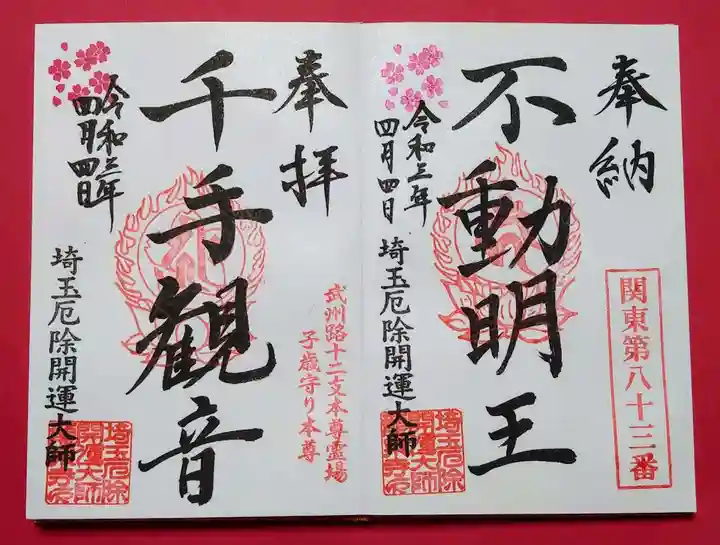 奉納
関東第八十三番
不動明王
令和三年
四月四日
埼玉厄除開運大師
埼玉厄除
開運大師
奉拝
武州路十二支本尊霊場
子歳守り本尊
千手観音
令和三年
四月四日
埼玉厄除開運大師
埼玉厄除
開運大師